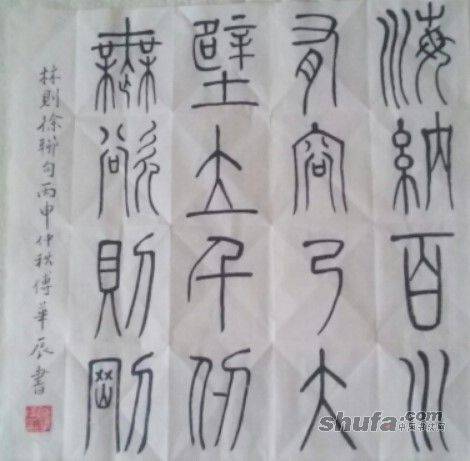 海納百川
有容乃大
壁立千仞
無欲則剛
林則徐聯句丙申仲秋傅華辰書
shufa.com
中国书法网